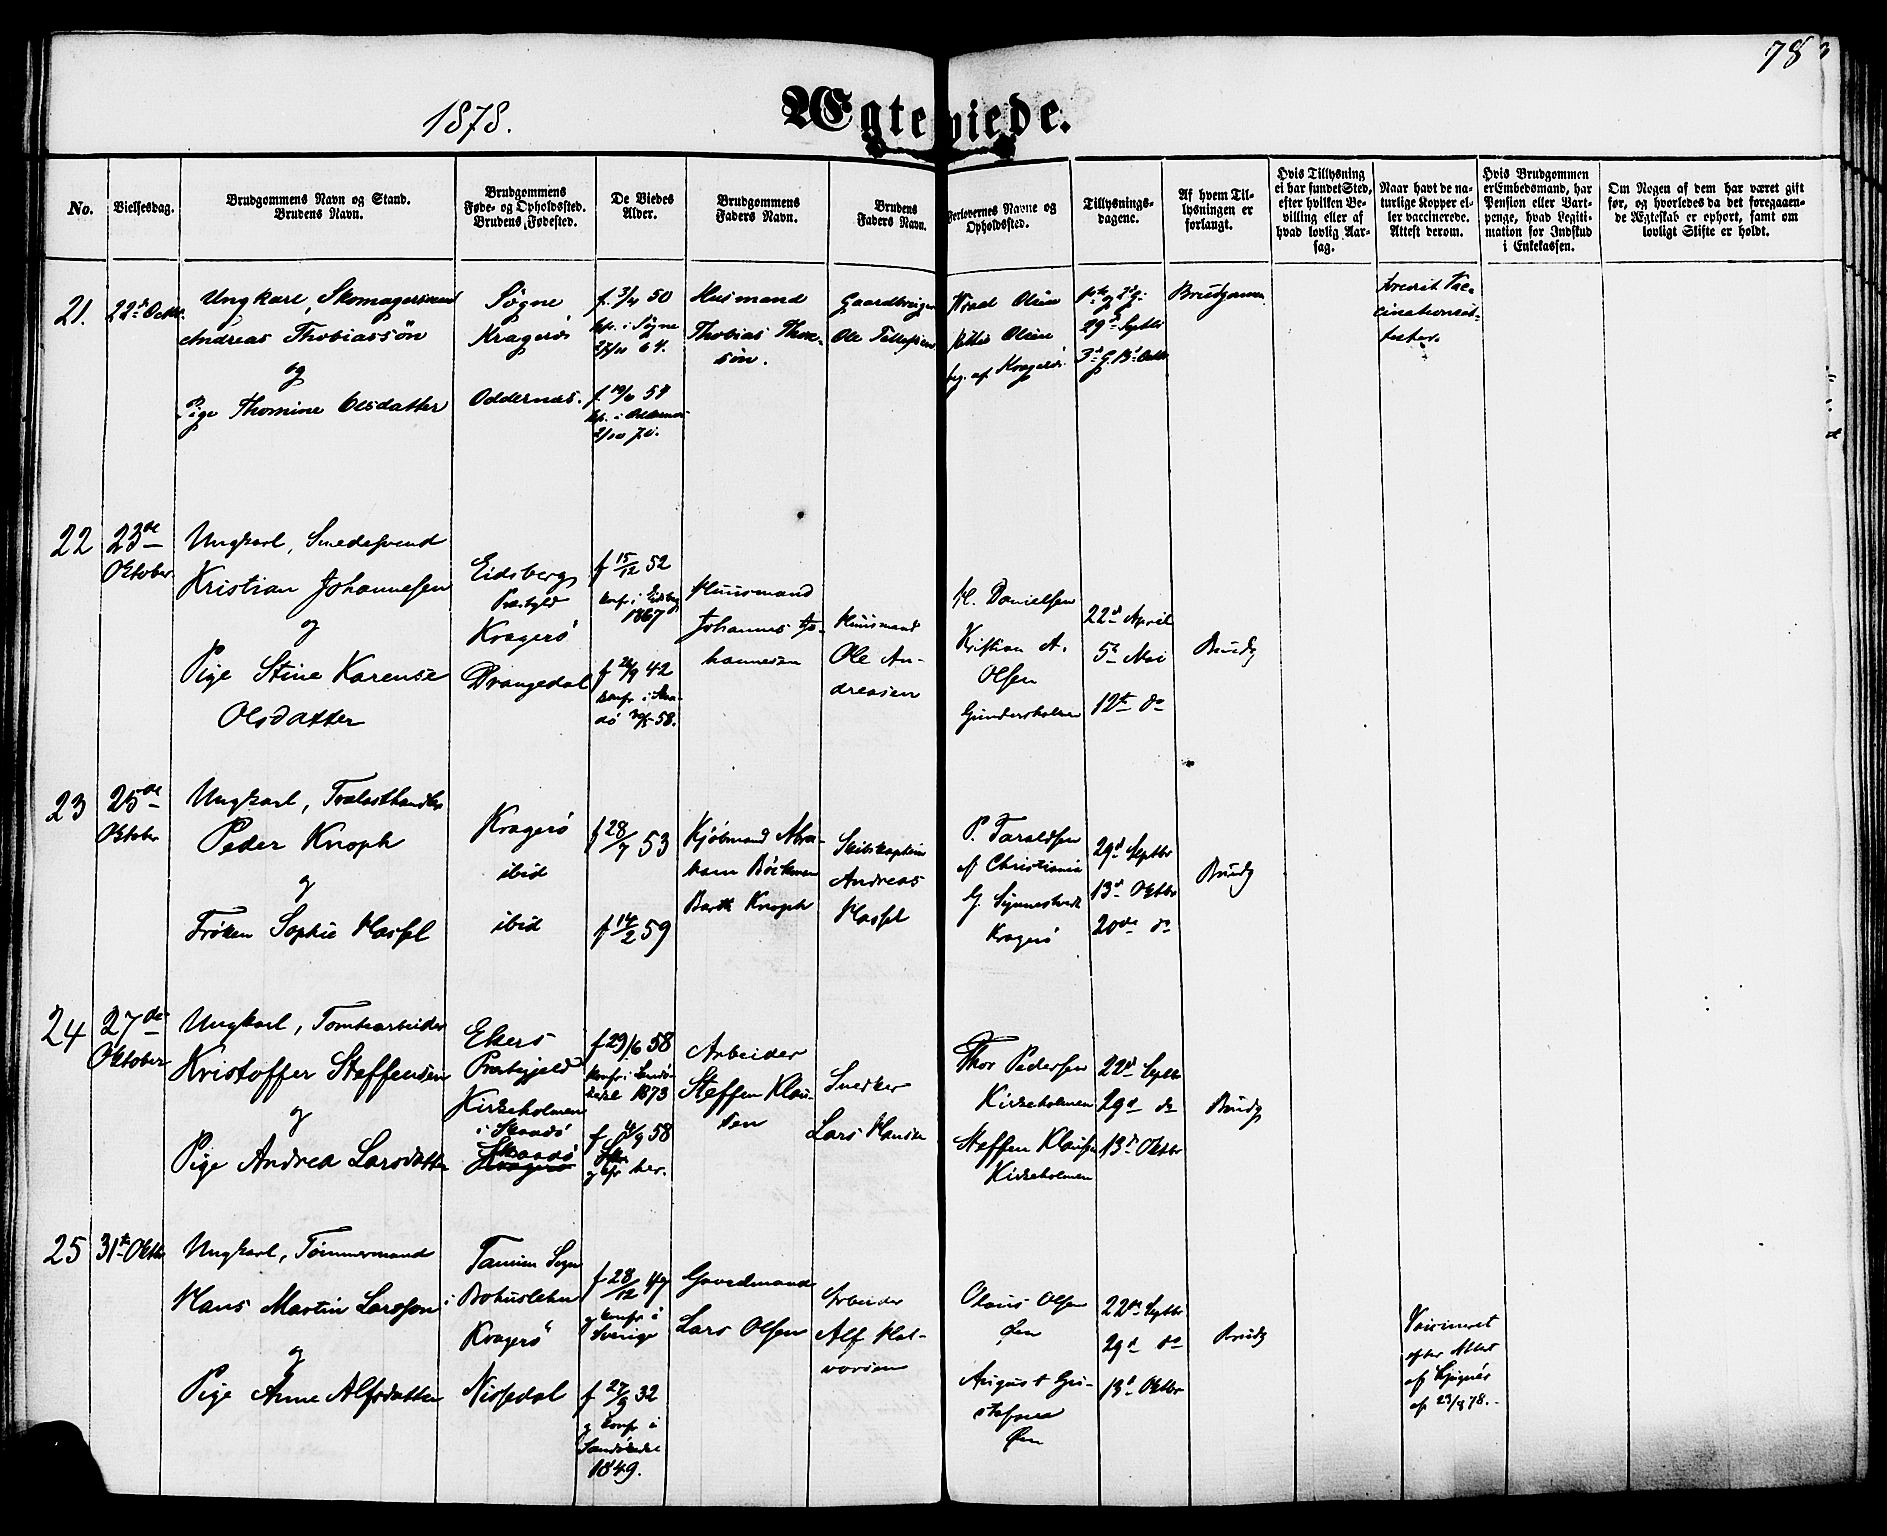 78
1878.
Ægteviede.
No.
Vielsesdag.
Brudgommens Navn og Stand.
Brudens Navn.
Brudgommens
Føde- og Opholdssted.
Brudens Fødested.
De Viedes
Alder.
Brudgommens
Faders Navn.
Brudens
Faders Navn.
Forlovernes Navne og
Opholdssted.
Tillysnings-
dagene.
Af hvem Til-
lysningen er
forlangt.
Hvis Tillysning
ei har fundet Sted,
efter hvilken Be-
villing eller af
hvad lovlig Aar-
sag.
Naar havt de na-
turlige Kopper el-
ler vaccinerede.
Attest derom.
Hvis Brudgommen
er Embedsmand, har
Pension eller Vart-
penge, hvad Legiti-
mation for Indskud
i Enkekassen.
Om Nogen af dem har været gift
før, og hvorledes da det foregaaen-
de Ægteskab er ophørt, samt om
lovligt Skifte er holdt.
21.
Ungkarl, Skomagersvend
Andreas Thobiassøn
og
Pige Thomine Olsdatter
Søgne
Kragerø
Oddernæs.
f. 3/4 50
i Søgne
64.
f. 19/6 54
2/10 70.
Husmand
Thobias
søn.
Gaardbruger
Ole
Olsen
Olsen
af Kragerø.
29d Septbr
Brudgommen
22
23de
Oktober
Ungkarl, Smedesvend
Kristian Johannesen
og
Pige Stine Karense
Olsdatter
Eidsberg
Præstgjld
Kragerø
Drangedal
f 15/12 52
konfr i Eidsberg
1867
f 24/9 42
konfr i Skaa-
dø 58.
Huusmand
Johannes Jo-
hannesen
Huusmand
Ole An-
dreasen
H. Danielsen
Kristian A.
Olsen
Gundersholmen
22d April
5te Mai
12te do
Brudg
23
25de
Oktober
Ungkarl, Trælasthandler
Peder Knoph
og
Frøken Sophie Hassel
Kragerø
ibid
ibid
f 28/7 53
f 14/2 59
Kjøbmand Abra-
ham Böckman
Barth Knoph
Skibskaptein
Andreas
Hassel
P. Taraldsen
af Christiania
G.
Kragerø
29d Septbr
13d Oktbr
20de do
Brudg
24
27de
Oktober
Ungkarl, Tomtearbeider
Kristoffer Steffensen
og
Pige Andrea Larsdatter
Ekers
Præstegjeld
Kirkeholmen
i Skaadø
Skaadø
Kragerø
f 29/6 58
konfr i Sandø-
kedel 1873
f 4/9 58
her.
Arbeider
Steffen Klau-
sen
Snedker
Lars Hansen
Thor Pedersen
Kirkeholmen
Steffen Klausen
Kirkeholmen
22d Septbr
29d do
13d Oktbr
Brudg
25
31te Oktbr
Ungkarl, Tømmermand
Hans Martin Larsson
og
Pige Anne Alfsdatter
Tanum Sogn
i Bohuslehn
Kragerø
Nissedal
f 28/12 49
g konfr i
Sverige
f 27/9 32
g konfr i
Sandøkedel
1849.
Gaardmand
Lars Olsen
Arbeider
Alf Hal-
vorsen
Olaus Olsen
Øen
August Gu-
stafsen
Øen
22de Septbr
29d do
13d Oktbr
Brudg
Vaccineret
efter Attest
af
af 23/8 78.